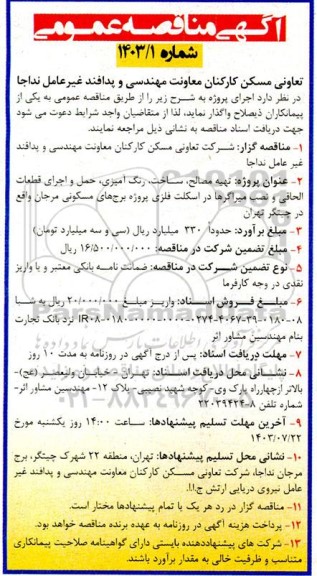 آگهی مناقصه عمومی
شماره ۱۴۰۳/۱
تعاونی مسکن کارکنان معاونت مهندسی و پدافند غیرعامل نداجا
در نظر دارد اجرای پروژه به شرح زیر را از طریق مناقصه عمومی به یکی از
پیمانکاران ذیصلاح واگذار نماید، لذا از متقاضیان واجد شرایط دعوت می شود
جهت دریافت اسناد مناقصه به نشانی ذیل مراجعه نمایند.
۱- مناقصه گزار: شرکت تعاونی مسکن کارکنان معاونت مهندسی و پدافند
غیر عامل نداجا
۲- عنوان پروژه: تهیه مصالح، ساخت، رنگ آمیزی، حمل و اجرای قطعات
الحاقی و نصب میراگرها در اسکلت فلزی پروژه برج‌های مسکونی مرجان واقع
در چیتگر تهران
۳- مبلغ برآورد: حدوداً ۳۳۰ میلیارد ریال (سی و سه میلیارد تومان)
۴- مبلغ تضمین شرکت در مناقصه: ۱۶/۵۰۰/۰۰۰/۰۰۰ ریال
۵- نوع تضمین شرکت در مناقصه: ضمانت نامه بانکی معتبر و یا واریز
نقدی در وجه کارفرما
۶- مبلغ فروش اسناد: واریز مبلغ ۲۰/۰۰۰/۰۰۰ ریال به شبا
نزد بانک تجارت
بنام مهندسین مشاور اثر
۷- مهلت دریافت اسناد: پس از درج آگهی در روزنامه به مدت ۱۰ روز
۸- نشانی محل دریافت اسناد: تهران- خیابان ولیعصر (عج)-
بالاتر ازچهارراه پارک وی-کوچه شهید نصیبی- پلاک ۱۲- مهندسین مشاور اثر-
شماره تلفن ۲۲۰۳۹۴۲۸
۹- آخرین مهلت تسلیم پیشنهادها: ساعت ۱۴:۰۰ روز یکشنبه مورخ
۱۴۰۳/۰۷/۲۲
۱۰- نشانی محل تسلیم پیشنهادها: تهران، منطقه ۲۲ شهرک چیتگر، برج
مرجان نداجا، شرکت تعاونی مسکن کارکنان معاونت مهندسی و پدافند غیر
عامل نیروی دریایی ارتش ج.ا.ا.
۱۱- مناقصه گزار در رد هر یک یا تمام پیشنهادها مختار است.
۱۲- پرداخت هزینه آگهی در روزنامه به عهده برنده مناقصه خواهد بود.
۱۳- شرکت های پیشنهاددهنده بایستی دارای گواهینامه صلاحیت پیمانکاری
متناسب و ظرفیت خالی به مقدار برآورد باشند.